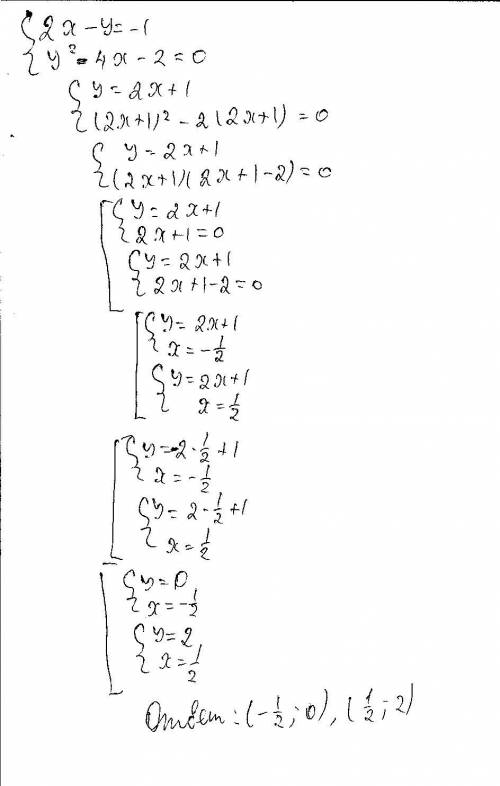 { 2x - y = -1
{ y² = 4x - 2 = 0
{ y = 2x + 1
{ (2x+1)² - 2(2x+1) = 0
{ y = 2x+1
{ (2x+1)(2x+1-2) = 0
[ { y = 2x+1
{ 2x+1 = 0
{ y = 2x+1
{ 2x+1-2 = 0
[ { y = 2x+1
{ x = -1/2
{ y = 2x+1
{ x = 1/2
[ { y = -2·1/2+1
{ x = -1/2
{ y = 2·1/2+1
{ x = 1/2
[ { y = 0
{ x = -1/2
{ y = 2
{ x = 1/2
Ответ: (-1/2; 0), (1/2; 2)